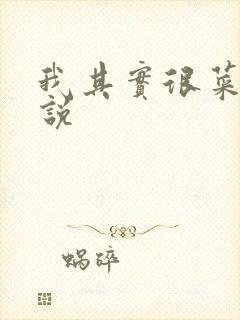 我其實很菜
說
蝸碎